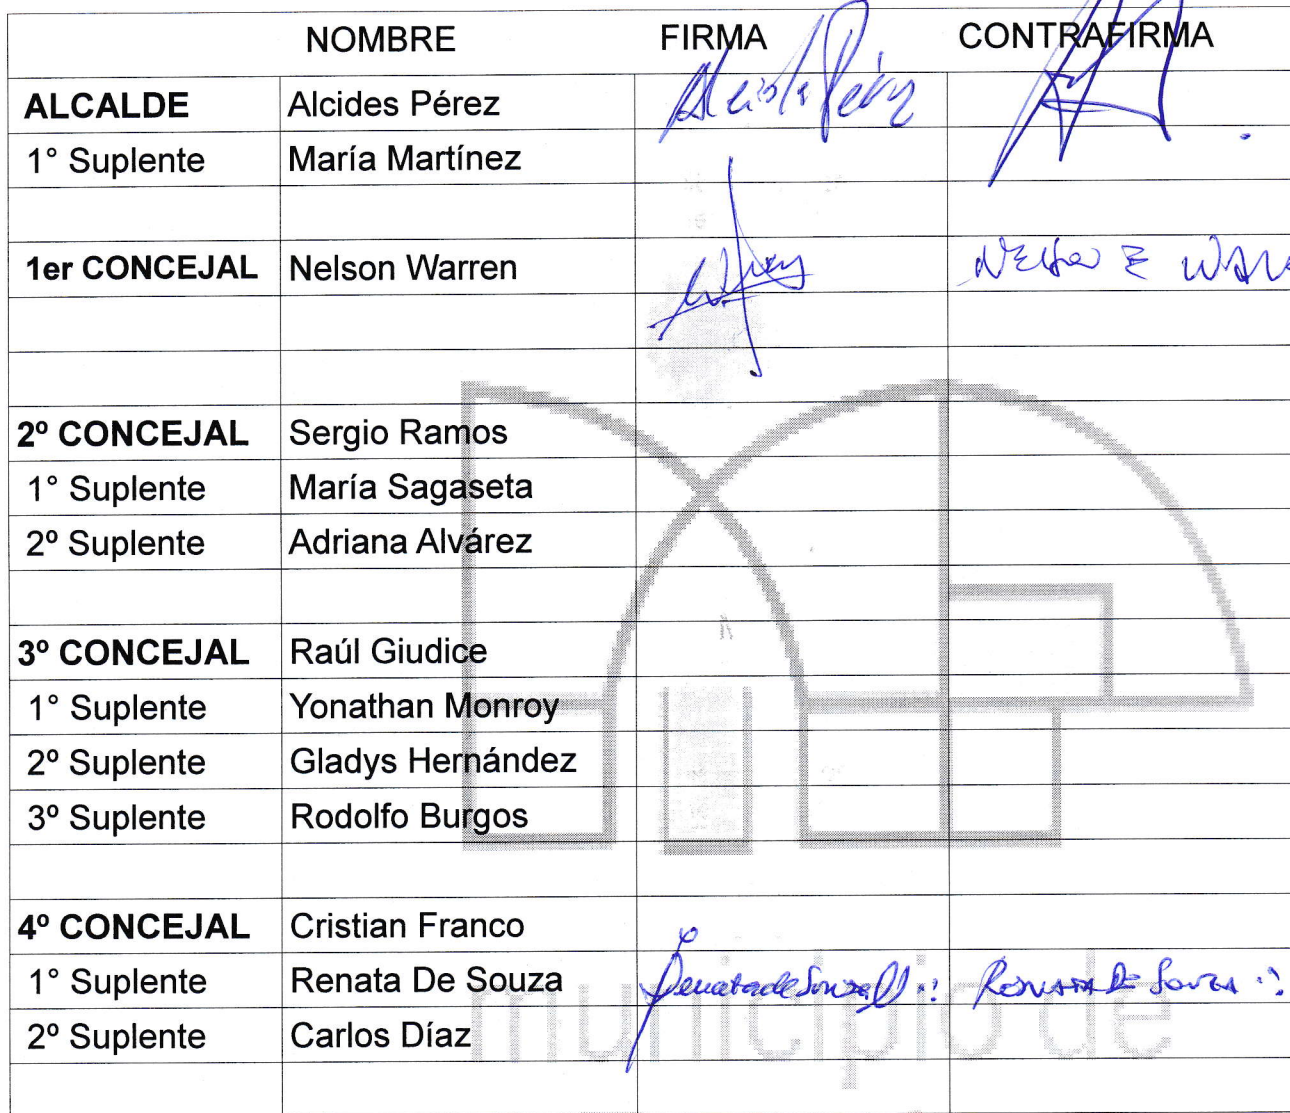 NOMBRE FIRMA CONTRAFIRMA
ALCALDE Alcides Pérez
1° Suplente María Martínez
1er CONCEJAL Nelson Warren Nelson E
2º CONCEJAL Sergio Ramos
1° Suplente María Sagaseta
2º Suplente Adriana Alvárez
3º CONCEJAL Raúl Giudice
1° Suplente Yonathan Monroy
2º Suplente Gladys Hernández
3º Suplente Rodolfo Burgos
4º CONCEJAL Cristian Franco
1° Suplente Renata De Souza Renata de Souza Renata De Souza
2º Suplente Carlos Díaz
municipio de